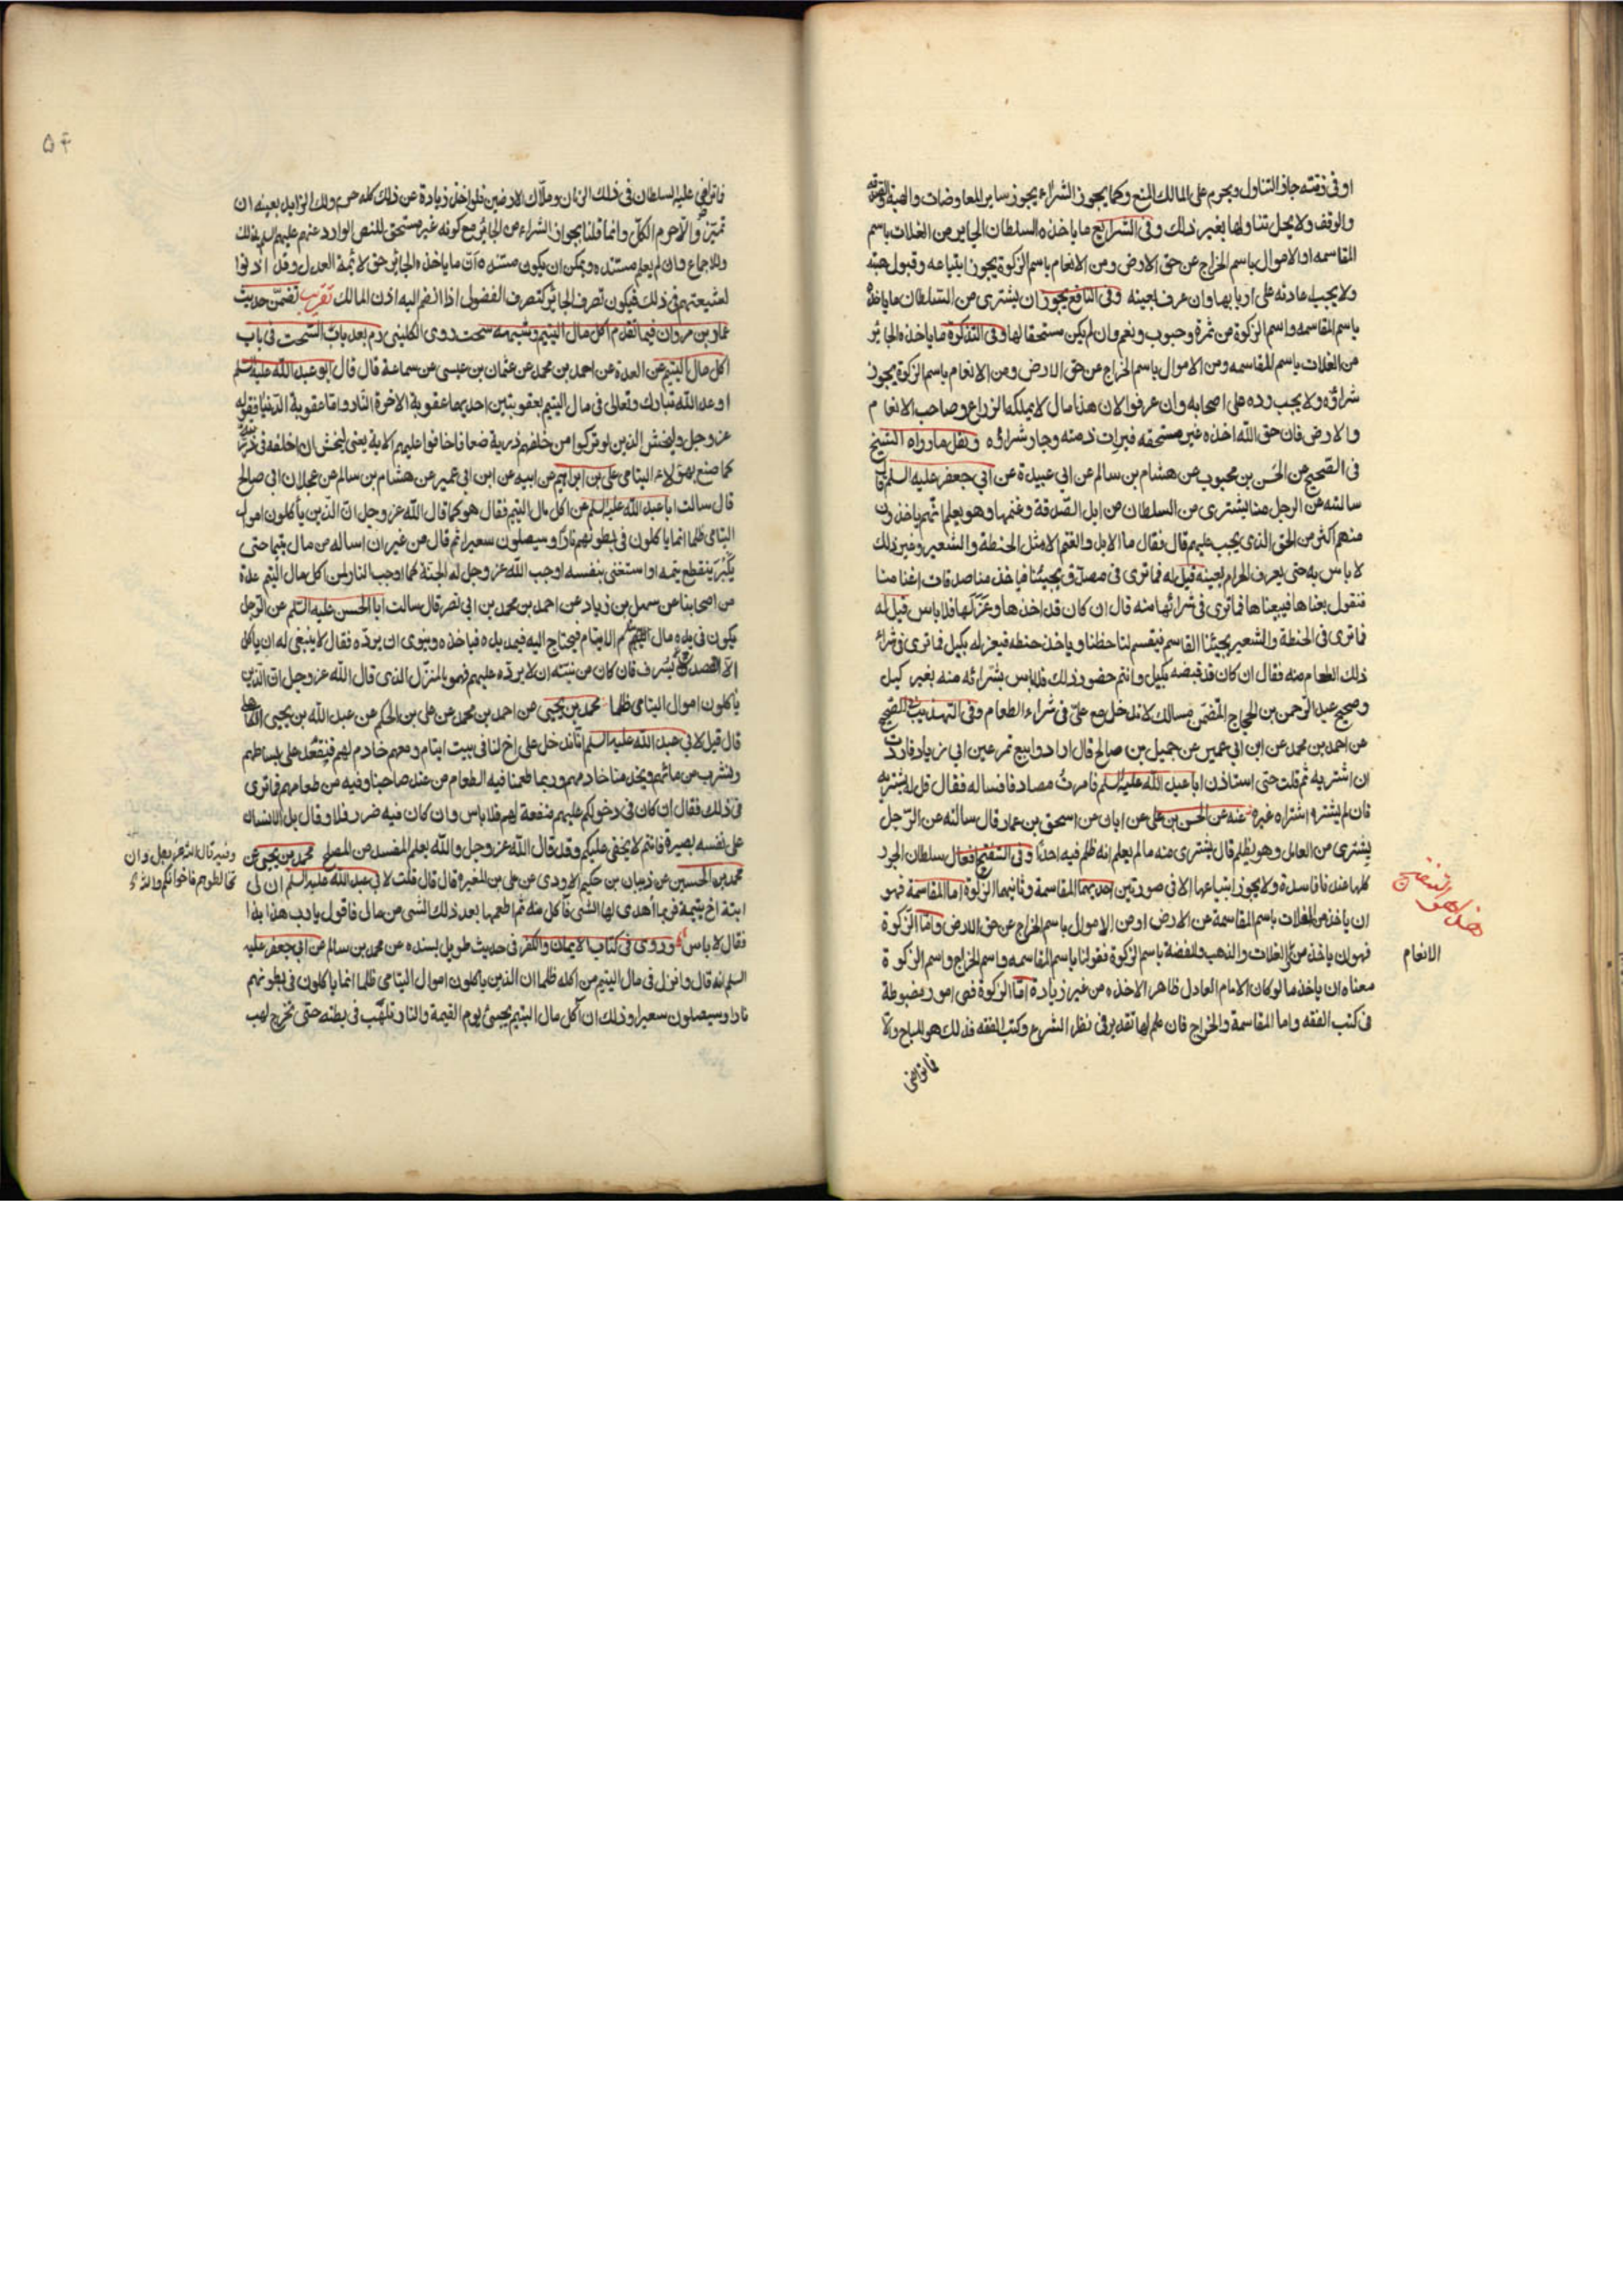 او فى ذمّته جاز التناول ويحرم على المالك المنع وكما يجوز الشراء يجوز ساير المعاوضات والهبة والصدقه
والوقف ولا يحل تناولها بغير ذلك وفى الشرائع ما ياخذه السلطان الجاير من الغلات باسم
المقاسمه او الاموال باسم الخراج عن حق الارض ومن الانعام باسم الزكوة يجوز ابتياعه وقبول هبته
ولا يجب عادته على اربابها وان عرف بعينه وفى النافع يجوز ان يشترى من السلطان ما ياخذه
باسم المقاسمه واسم الزكوة من ثمرة وحبوب ونعم وان لم يكن مستحقا لها وفى التذكرة ما ياخذه الجائر
من الغلات باسم المقاسمه ومن الاموال باسم الخراج عن حق الارض ومن الانعام باسم الزكوة يجوز
شراؤه ولا يجب رده على اصحابه وان عرفوا لان هذا مال لا يملكه الزراع وصاحب الانعام
والارض فان حق الله اخذه غير مستحقه فبرات ذمته وجاز شراؤه ونقل ما رواه الشيخ
فى الصحيح عن الحسن بن محبوب عن هشام بن سالم عن ابى عبيدة عن ابى جعفر عليه السلم قال
سالته عن الرجل منا يشترى من السلطان من ابل الصّدقة وغنمها وهو يعلم انهم ياخذون
منهم اكثر من الحق الذى يجب عليهم قال فقال ما الابل والغنم الا مثل الحنطة والشعير وغير ذلك
لا باس به حتى يعرف الحرام بعينه قيل له فما ترى فى مصدّق يجيئنا فياخذ منا صدقات اغنامنا
فنقول بعناها فيبيعناها فما ترى فى شرائها منه قال ان كان قد اخذها وعزلها فلا باس قيل له
فما ترى فى الحنطة والشعير يجيئنا القاسم فيقسم لنا حظنا وياخذ حنطه فيعزله بكيل فما ترى فى شراء
ذلك الطعام منه فقال ان كان قد قبضه بكيل وانتم حضور ذلك فلا باس بشرائه منه بغير كيل
وصحيح عبد الرحمن بن الحجاج المتضمّن مالك لا تدخل مع علىّ فى شراء الطعام وفى التهذيب الصحيح
عن احمد بن محمد عن ابن ابى عمير عن جميل بن صالح قال ارادوا بيع تمر عين ابى زياد فاردت
ان اشتريه ثم قلت حتى استاذن ابا عبد الله عليه السلم فامرت مصادفا فساله فقال قل له يشتريه
فان لم يشتره اشتراه غيره عنه عن الحسن بن على عن ابان عن اسحق بن عمار قال سالته عن الرّجل
يشترى من العامل وهو يظلم قال يشترى منه ما لم يعلم انه ظلم فيه احدًا وفى التنقيح افعال سلطان الجور
كلها عندنا فاسدة ولا يجوز ابتياعها الا فى صورتين احديهما المقاسمة وثانيهما الزكوة اما المقاسمة فهو
ان ياخذ من الغلات باسم المقاسمة عن الارض او من الاموال باسم الخراج عن حق الارض واما الزكوة
فهو ان ياخذ من الغلات والذهب والفضة باسم الزكوة فقولنا باسم المقاسمه واسم الخراج واسم الزكوة
الانعام
معناه ان ياخذ ما لو كان الامام العادل ظاهرا لاخذه من غير زيادة اما الزكوة فهى امور مضبوطة
فى كتب الفقه واما المقاسمة والخراج فان علم لها تقدير فى نظر الشرع وكتب الفقه فذلك هو المباح والّا
فما تراضى
۵۴
فما تراضى عليه السلطان فى ذلك الزمان وملّاك الارضين فلو اخذ زيادة عن ذلك كله حرم ذلك الزايد بعينه ان
تميّز والّا حرم الكلّ وانما قلنا بجواز الشراء من الجائر مع كونه غير مستحق للنص الوارد عنهم عليهم السلم بذلك
وللاجماع وان لم يعلم مستنده ويمكن ان يكون مستنده ان ما ياخذه الجائر حق لائمة العدل وقد اذنوا
لشيعتهم فى ذلك فيكون تصرف الجائر كتصرف الفضولى اذا انضم اليه اذن المالك تقريب تضمّن حديث
عمار بن مروان فيما تقدم اكل مال اليتيم وشبهه سحت روى الكلينى ره بعد باب السّحت فى باب
اكل مال اليتيم عن العدة عن احمد بن محمد عن عثمان بن عيسى عن سماعة قال قال ابو عبد الله عليه السلم
اوعد الله تبارك وتعالى فى مال اليتيم بعقوبتين احديهما عقوبة الاخرة النار واما عقوبة الدنيا فقوله
عز وجل وليخش الذين لو تركوا من خلفهم ذرية ضعافا خافوا عليهم الاية يعنى ليخش ان اخلفه فى ذريته
كما صنع بهؤلاء اليتامى على بن ابراهيم عن ابيه عن ابن ابى عمير عن هشام بن سالم عن عجلان ابى صالح
قال سالت ابا عبد الله عليه السلم عن اكل مال اليتيم فقال هو كما قال الله عز وجل انّ الذين يأكلون اموال
اليتامى ظلما انما ياكلون فى بطونهم نارًا وسيصلون سعيرا ثم قال من غير ان اساله من عال يتيما حتى
ينقطع يتمه او استغنى بنفسه اوجب الله عز وجل له الجنة كما اوجب النار لمن اكل مال اليتيم عدة
من اصحابنا عن سهل بن زياد عن احمد بن محمد بن ابى نصر قال سالت ابا الحسن عليه السّلم عن الرجل
يكون فى يده مال لايتام فيحتاج اليه فيمد يده فياخذه وينوى ان يردّه فقال لا ينبغى له ان ياكل
الّا القصد ولا يسرف فان كان من نيّته ان لا يردّه عليهم فهو بالمنزل الذى قال الله عز وجل ان الّذين
ياكلون اموال اليتامى ظلما محمد بن يحيى عن احمد بن محمد عن على بن الحكم عن عبد الله بن يحيى الكاهلى
قال قيل لابى عبد الله عليه السلم انّا ندخل على اخ لنا فى بيت ايتام ومعهم خادم لهم فنقعد على بساطهم
ونشرب من مائهم ويخدمنا خادمهم وربما طعمنا فيه الطعام من عند صاحبنا وفيه من طعامهم فما ترى
فى ذلك فقال ان كان فى دخولكم عليهم منفعة لهم فلا باس وان كان فيه ضرر فلا وقال بل الانسان
على نفسه بصيرة فانتم لا يخفى عليكم وقد قال الله عز وجل والله يعلم المفسد من المصلح محمد بن يحيى عن
محمد بن الحسين عن ذبيان بن حكيم الاودى عن على بن المغيرة قال قال قلت لابى عبد الله عليه السلم ان لى
ابنة اخ يتيمة فربما أهدى لها الشئ فآكل منه ثم اطعمها بعد ذلك الشئ من مالى فاقول يا رب هذا بذا
فقال لا باس وروى فى كتاب الايمان والكفر فى حديث طويل بسنده عن محمد بن سالم عن ابى جعفر عليه
السلم انه قال وانزل فى مال اليتيم من اكله ظلما ان الذين ياكلون اموال اليتامى ظلما انما ياكلون فى بطونهم
نارا وسيصلون سعيرا وذلك ان آكل مال اليتيم يجيئ يوم القيمة والنار تلهّب فى بطنه حتى يخرج لهب
وغيره قال الله عز وجل وان
تخالطوهم فاخوانكم والله